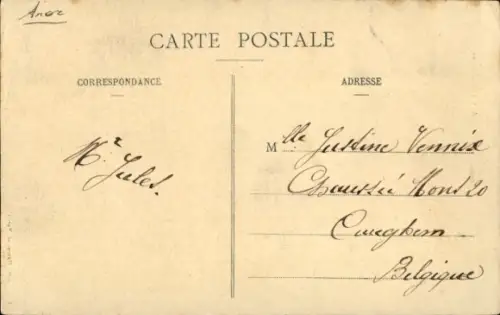 Anor
CARTE POSTALE
CORRESPONDANCE
ADRESSE
Mr Jules.
Mlle Justine Vennix
Chaussée Mons 20
Cureghem
Belgique